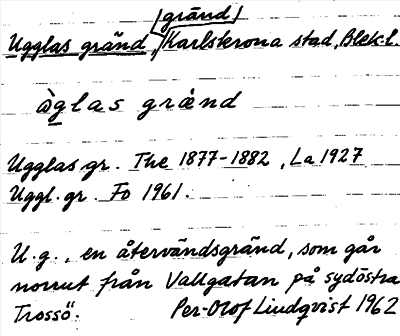 /gränd/
Ugglas gränd, Karlskrona stad, Blek.l.
àglas grànd
Ugglas gr. The 1877-1882, La 1927
Uggl. gr. Fo 1961.
U.g., en återvändsgränd, som går
norrut från Vallgatan på sydöstra
Trossö. Per-Olof Lindqvist 1962